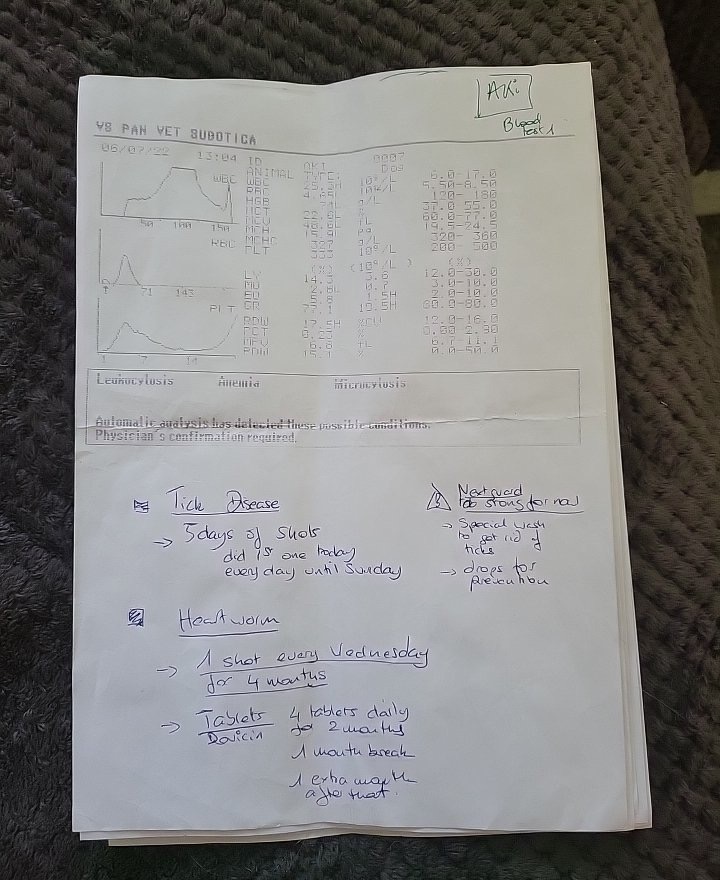 AKi
Blood
test 1
VS PAN VET BUDOTICA
06/07/22 13:04
ID AKI 0007
ANIMAL TYPE: Dog
WBC 10⁹/L 6.0-17.0
RBC 10¹²/L 5.50-8.50
HGB g/L 120- 180
HCT 22.6L % 37.0-55.0
MCV fL 60.0-77.0
MCH 15.9L pg 19.5-24.5
MCHC 327 g/L 320- 360
PLT 333 10⁹/L 200- 500
(%) (10⁹/L ) (%)
LY 14.3 3.6 12.0-30.0
MO 2.8L 0.7 3.0-10.0
EO 5.8 1.5H 2.0-10.0
GR 77.1 19.5H 60.0-80.0
RDW 17.5H 12.0-16.0
PCT %
MPV 6.8 fL 6.7-11.1
PDW 15.1 % 0.0-50.0
WBC
50 100 150
RBC
71 143
PLT
1 7 14
Leukocytosis Anemia Microcytosis
Automatic analysis has detected these possible conditions.
Physician's confirmation required.
Tick Disease
→ 5 days of shots
did 1st one today
every day until Sunday
Nextguard
too strong for now
→ Special wash
to get rid of
ticks
→ drops for
prevention
Heartworm
→ 1 shot every Wednesday
for 4 months
→ Tablets 4 tablets daily
Doxicin for 2 months
1 month break
1 extra month
after that.